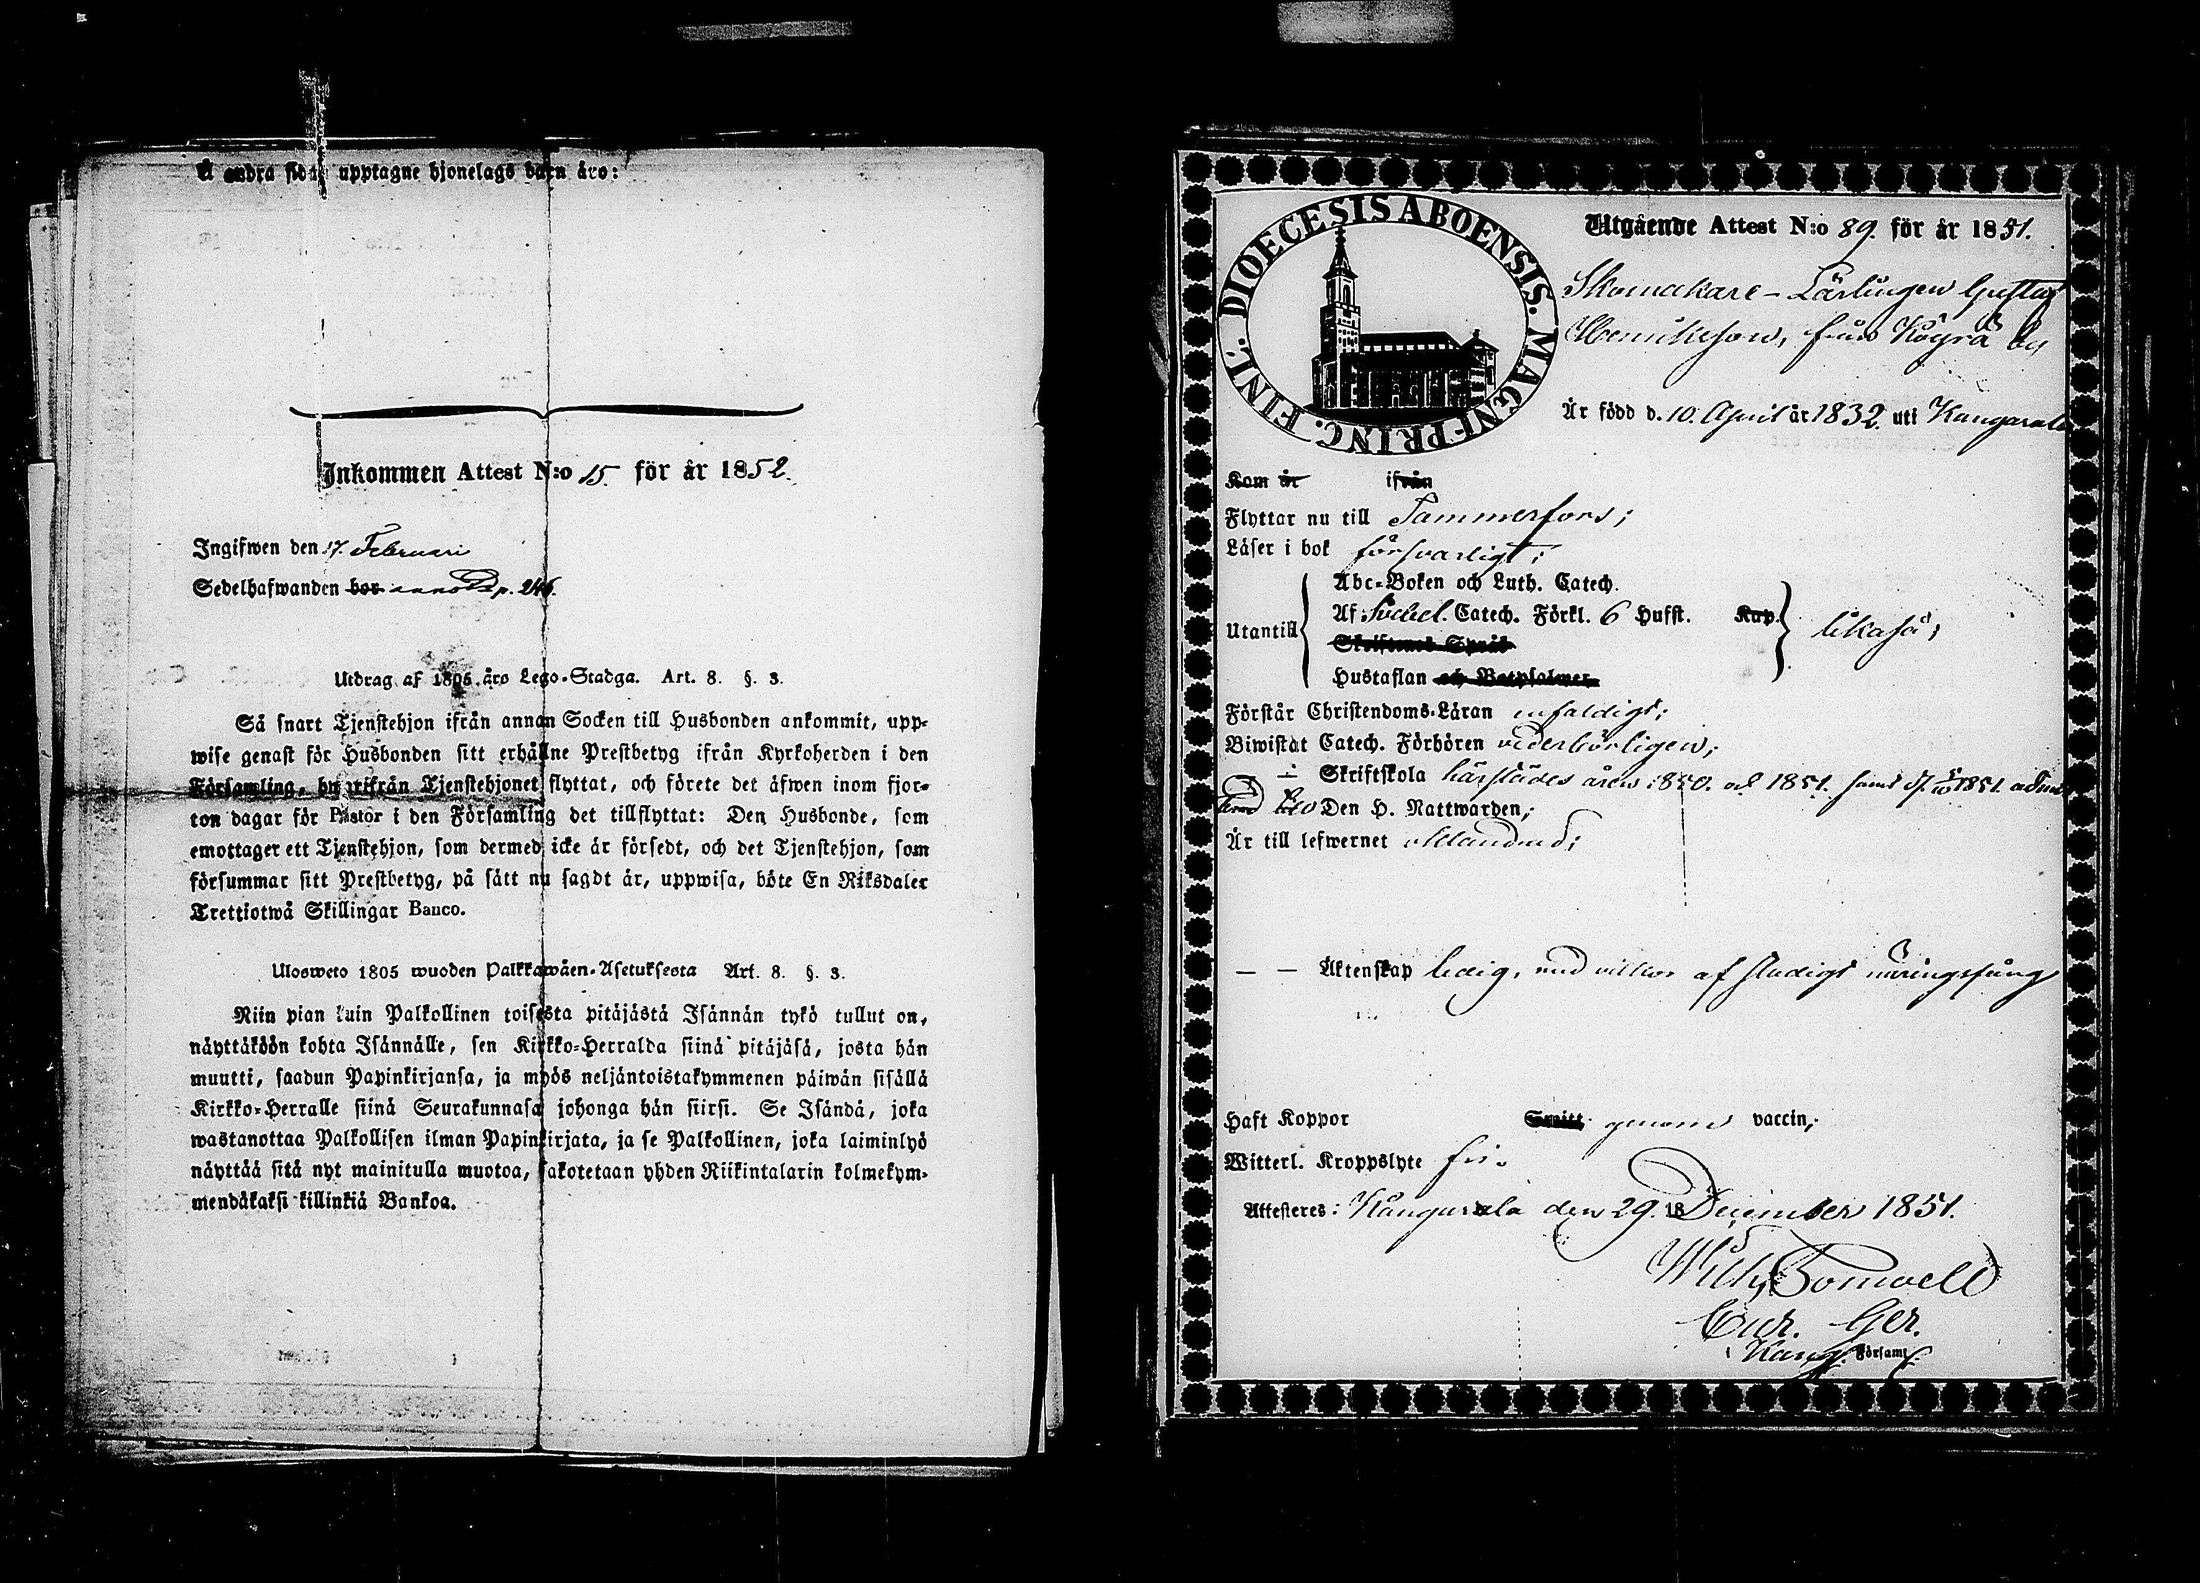 Å andra sidan upptagne hjonelags barn äro:
Inkommen Attest N:o 15. för år 1852.
Ingifwen den 17. Februari
Sedelhafwanden bor annoteras p. 246.
Utdrag af 1805 års Lego-Stadga. Art. 8. §. 3.
Så snart Tjenstehjon ifrån annan Socken till Husbonden ankommit, upp-
wise genast för Husbonden sitt erhållne Prestbetyg ifrån Kyrkoherden i den
Församling, hwarifrån Tjenstehjonet flyttat, och förete det äfwen inom fjor-
ton dagar för Pastor i den Församling det tillflyttat: Den Husbonde, som
emottager ett Tjenstehjon, som dermed icke är försedt, och det Tjenstehjon, som
försummar sitt Prestbetyg, på sätt nu sagdt är, uppwisa, böte En Riksdaler
Trettiotwå Skillingar Banco.
Ulosweto 1805 wuoden Palkkawäen-Asetuksesta Art. 8. §. 3.
Niin pian kuin Palkollinen toisesta pitäjästä Isännän tykö tullut on,
näyttäköön kohta Isännälle, sen Kirkko-Herralda siinä pitäjäsä, josta hän
muutti, saadun Papinkirjansa, ja myös neljäntoistakymmenen päiwän sisällä
Kirkko-Herralle siinä Seurakunnasa johonga hän siirsi. Se Isändä, joka
wastanottaa Palkollisen ilman Papinkirjata, ja se Palkollinen, joka laiminlyö
näyttää sitä nyt mainitulla muotoa, sakotetaan yhden Riikintalarin kolmekym-
mendäkaksi killinkiä Bankoa.
DIOECESIS ABOENSIS. MAGNI-PRINC. FINL:
Utgående Attest N:o 89. för år 1851.
Skomakare-Lärlingen Gustaf
Henriksson, från Köyrä by
Är född d. 10. April år 1832. uti Kangasala
Kom år ifrån
Flyttar nu till Tammerfors;
Läser i bok försvarligt;
Abc-Boken och Luth. Catech.
Utantill Af Svebel. Catech. Förkl. 6 Hufst. Kap. likaså;
Skriftenes Språk
Hustaflan och Botpsalmer
Förstår Christendoms-Läran enfaldigt;
Biwistat Catech. Förhören vederbörligen;
Skriftskola härstädes åren 1850. och 1851. samt d. 5/10 1851.
Den H. Nattwarden;
Är till lefwernet oklandrad;
— — Äktenskap ledig, med vilkor af stadigt näringsfång
Haft Koppor Smitt genom vaccin;
Witterl. Kroppslyte fri.
Attesteres: Kangasala den 29. 18 December 1851.
Wilh. Bomoell
Cur. Ger.
i Kang. Församl.